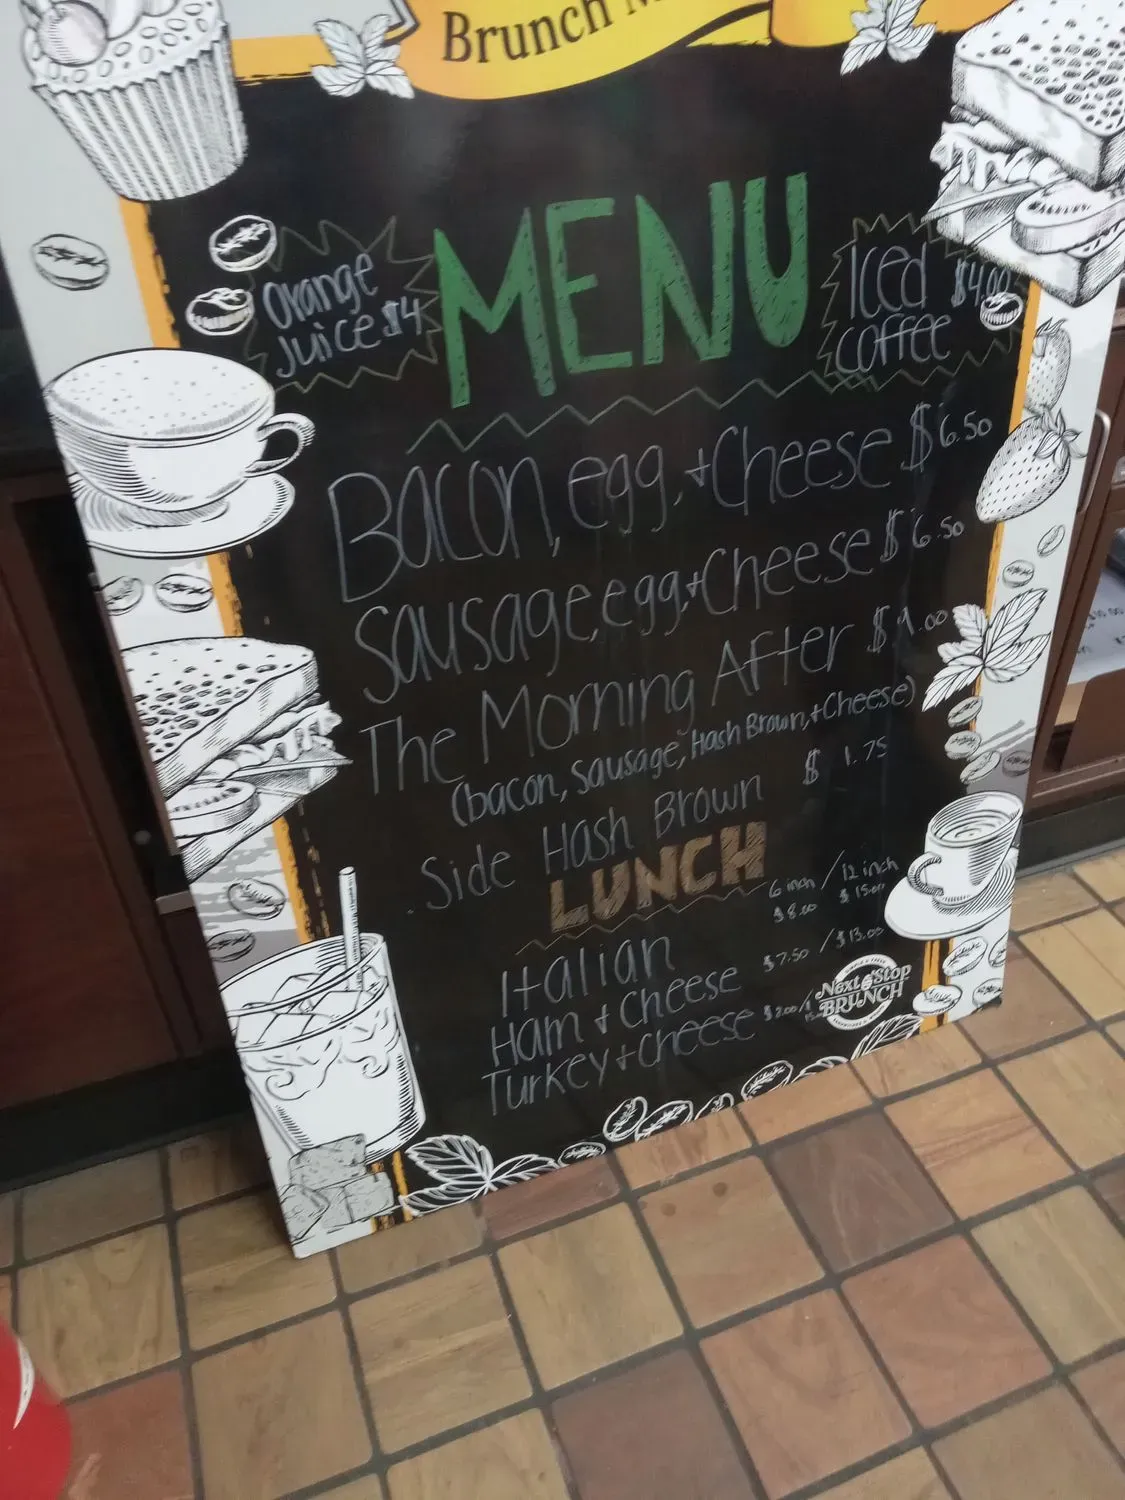 Brunch
MENU
Orange
Juice $4
Iced $4.00
Coffee
Bacon, egg, + Cheese $6.50
Sausage, egg, + Cheese $6.50
The Morning After $9.00
(bacon, sausage, Hash Brown, + Cheese)
Side Hash Brown $ 1.75
LUNCH
6 inch / 12 inch
Italian $8.00 $15.00
Ham + Cheese $7.50 / $13.00
Turkey + Cheese
Next Stop
BRUNCH